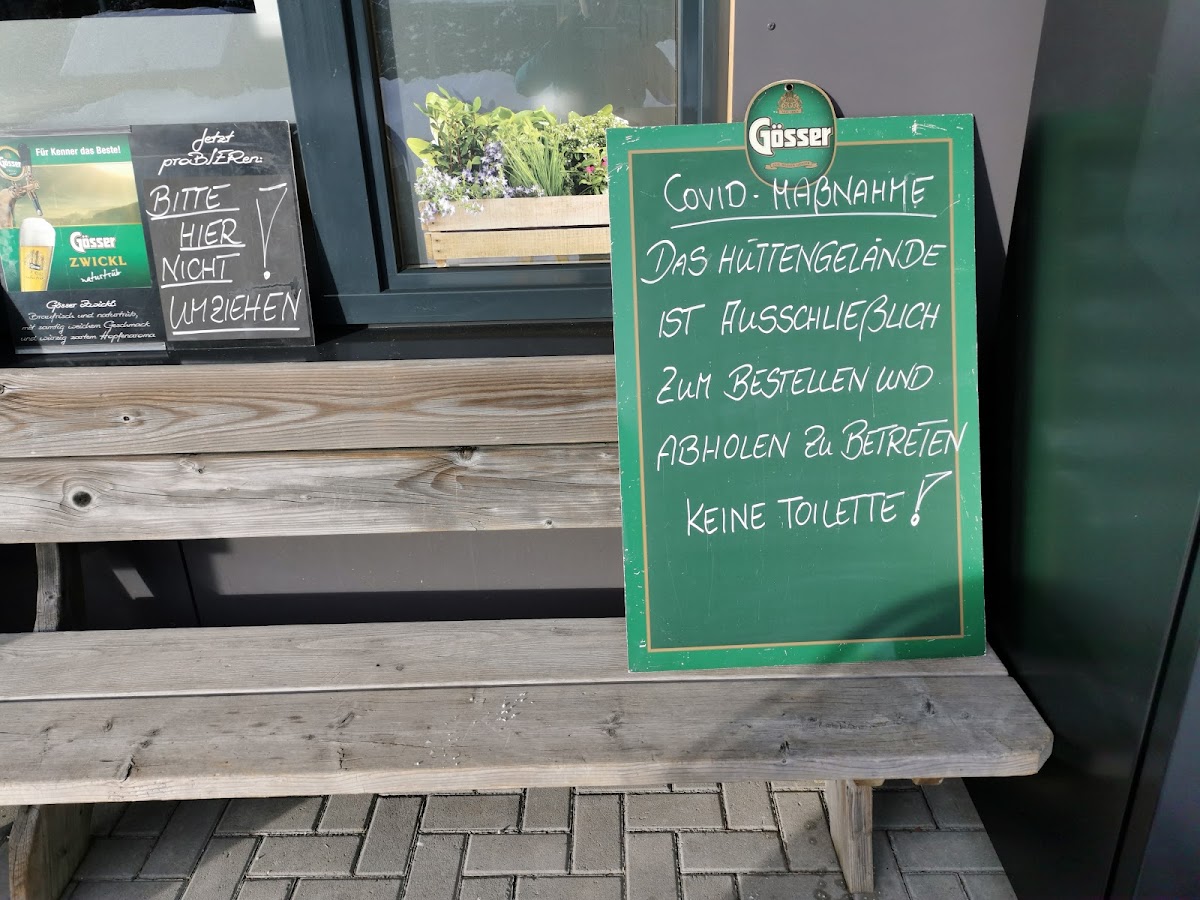 Gösser
Für Kenner das Beste!
Gösser
ZWICKL
naturtrüb
Gösser Zwickl:
Braufrisch und naturtrüb,
mit samtig weichem Geschmack
und würzig zartem Hopfenaroma
Jetzt
proBIERen:
BITTE
HIER
NICHT
UMZIEHEN !
Gösser
COVID - MAßNAHME
DAS HÜTTENGELÄNDE
IST AUSSCHLIEßLICH
ZUM BESTELLEN UND
ABHOLEN ZU BETRETEN
KEINE TOILETTE !